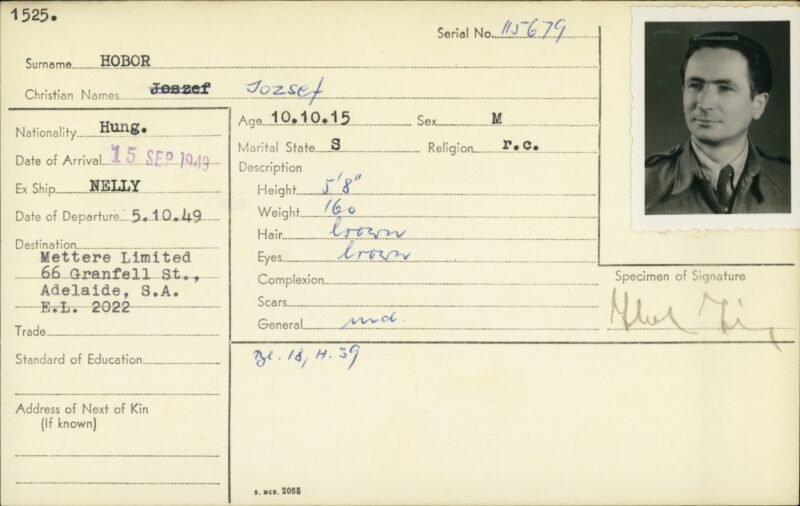 1525.
Serial No. 115679
Surname HOBOR
Christian Names Joszef Jozsef
Nationality Hung.
Date of Arrival 15 SEP 1949
Ex Ship NELLY
Date of Departure 5.10.49
Destination
Mettere Limited
66 Granfell St.,
Adelaide, S.A.
E.L. 2022
Trade
Standard of Education
Address of Next of Kin
(If known)
Age 10.10.15 Sex M
Marital State S Religion r.c.
Description
Height 5'8"
Weight 160
Hair brown
Eyes brown
Complexion
Scars
General md.
Specimen of Signature
Bl. 18, H. 39
S. MCD. 2085